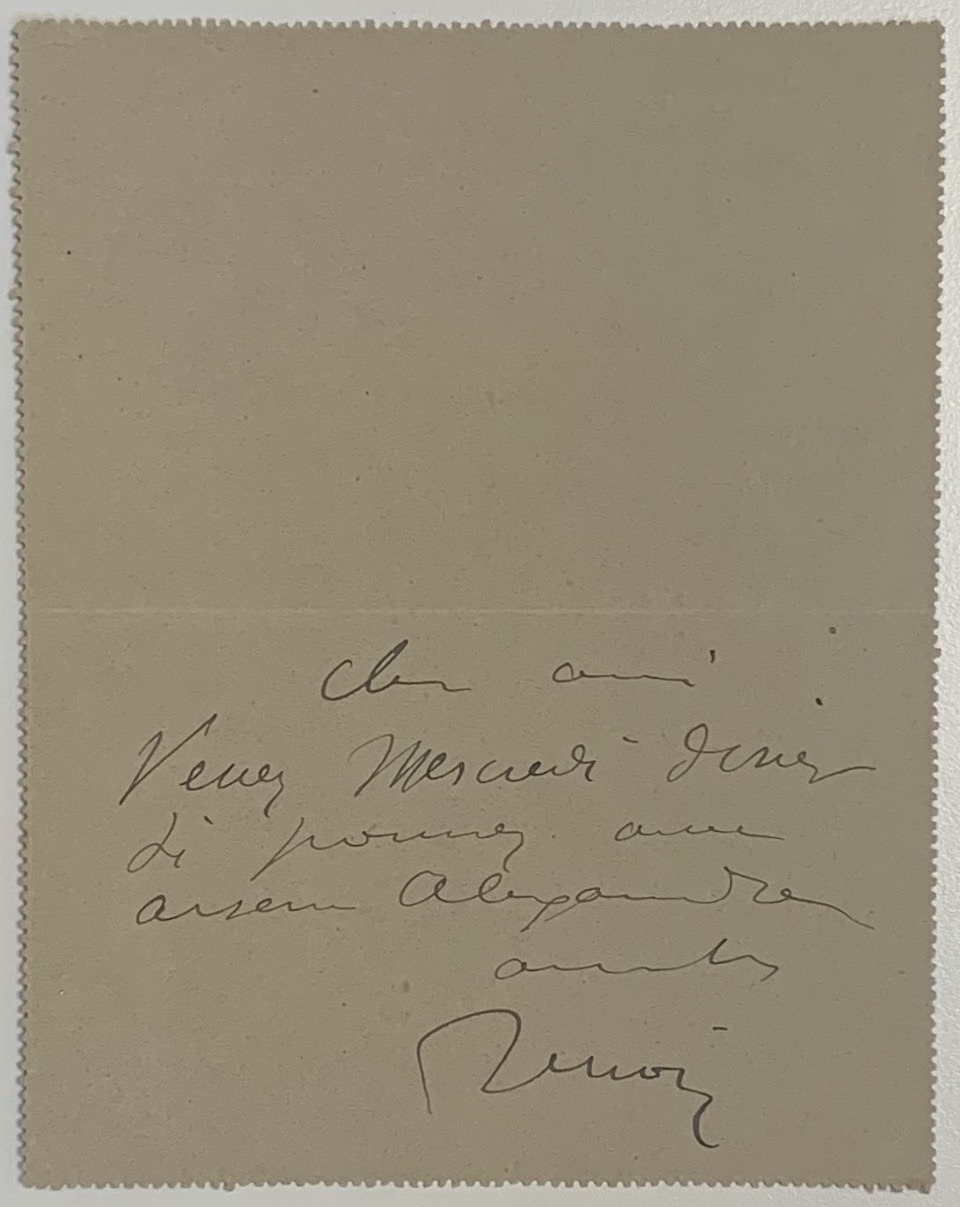 Cher ami
Venez Mercredi diner
si pouvez avec
arsene Alexandre
amitiés
Renoir